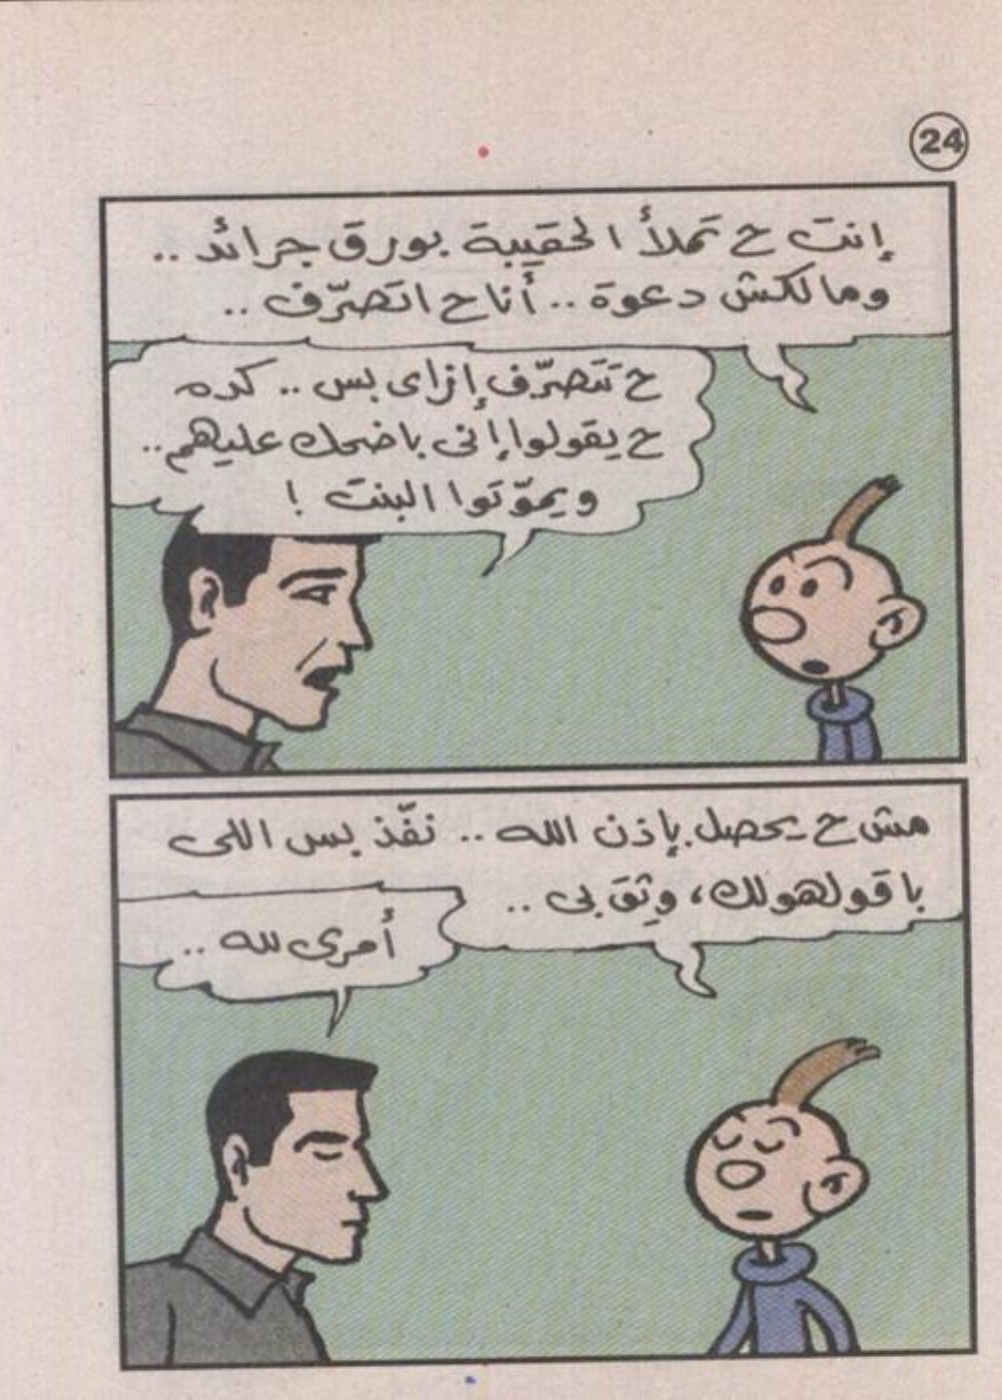 24
إنت ح تملأ الحقيبة بورق جرائد ..
ومالكش دعوة .. أنا ح اتصرّف ..
ح تتصرّف إزاى بس .. كده
ح يقولوا إنى باضحك عليهم ..
ويموّتوا البنت !
مش ح يحصل بإذن الله .. نفّذ بس اللى
باقولهولك، وثِق بى ..
أمرى لله ..